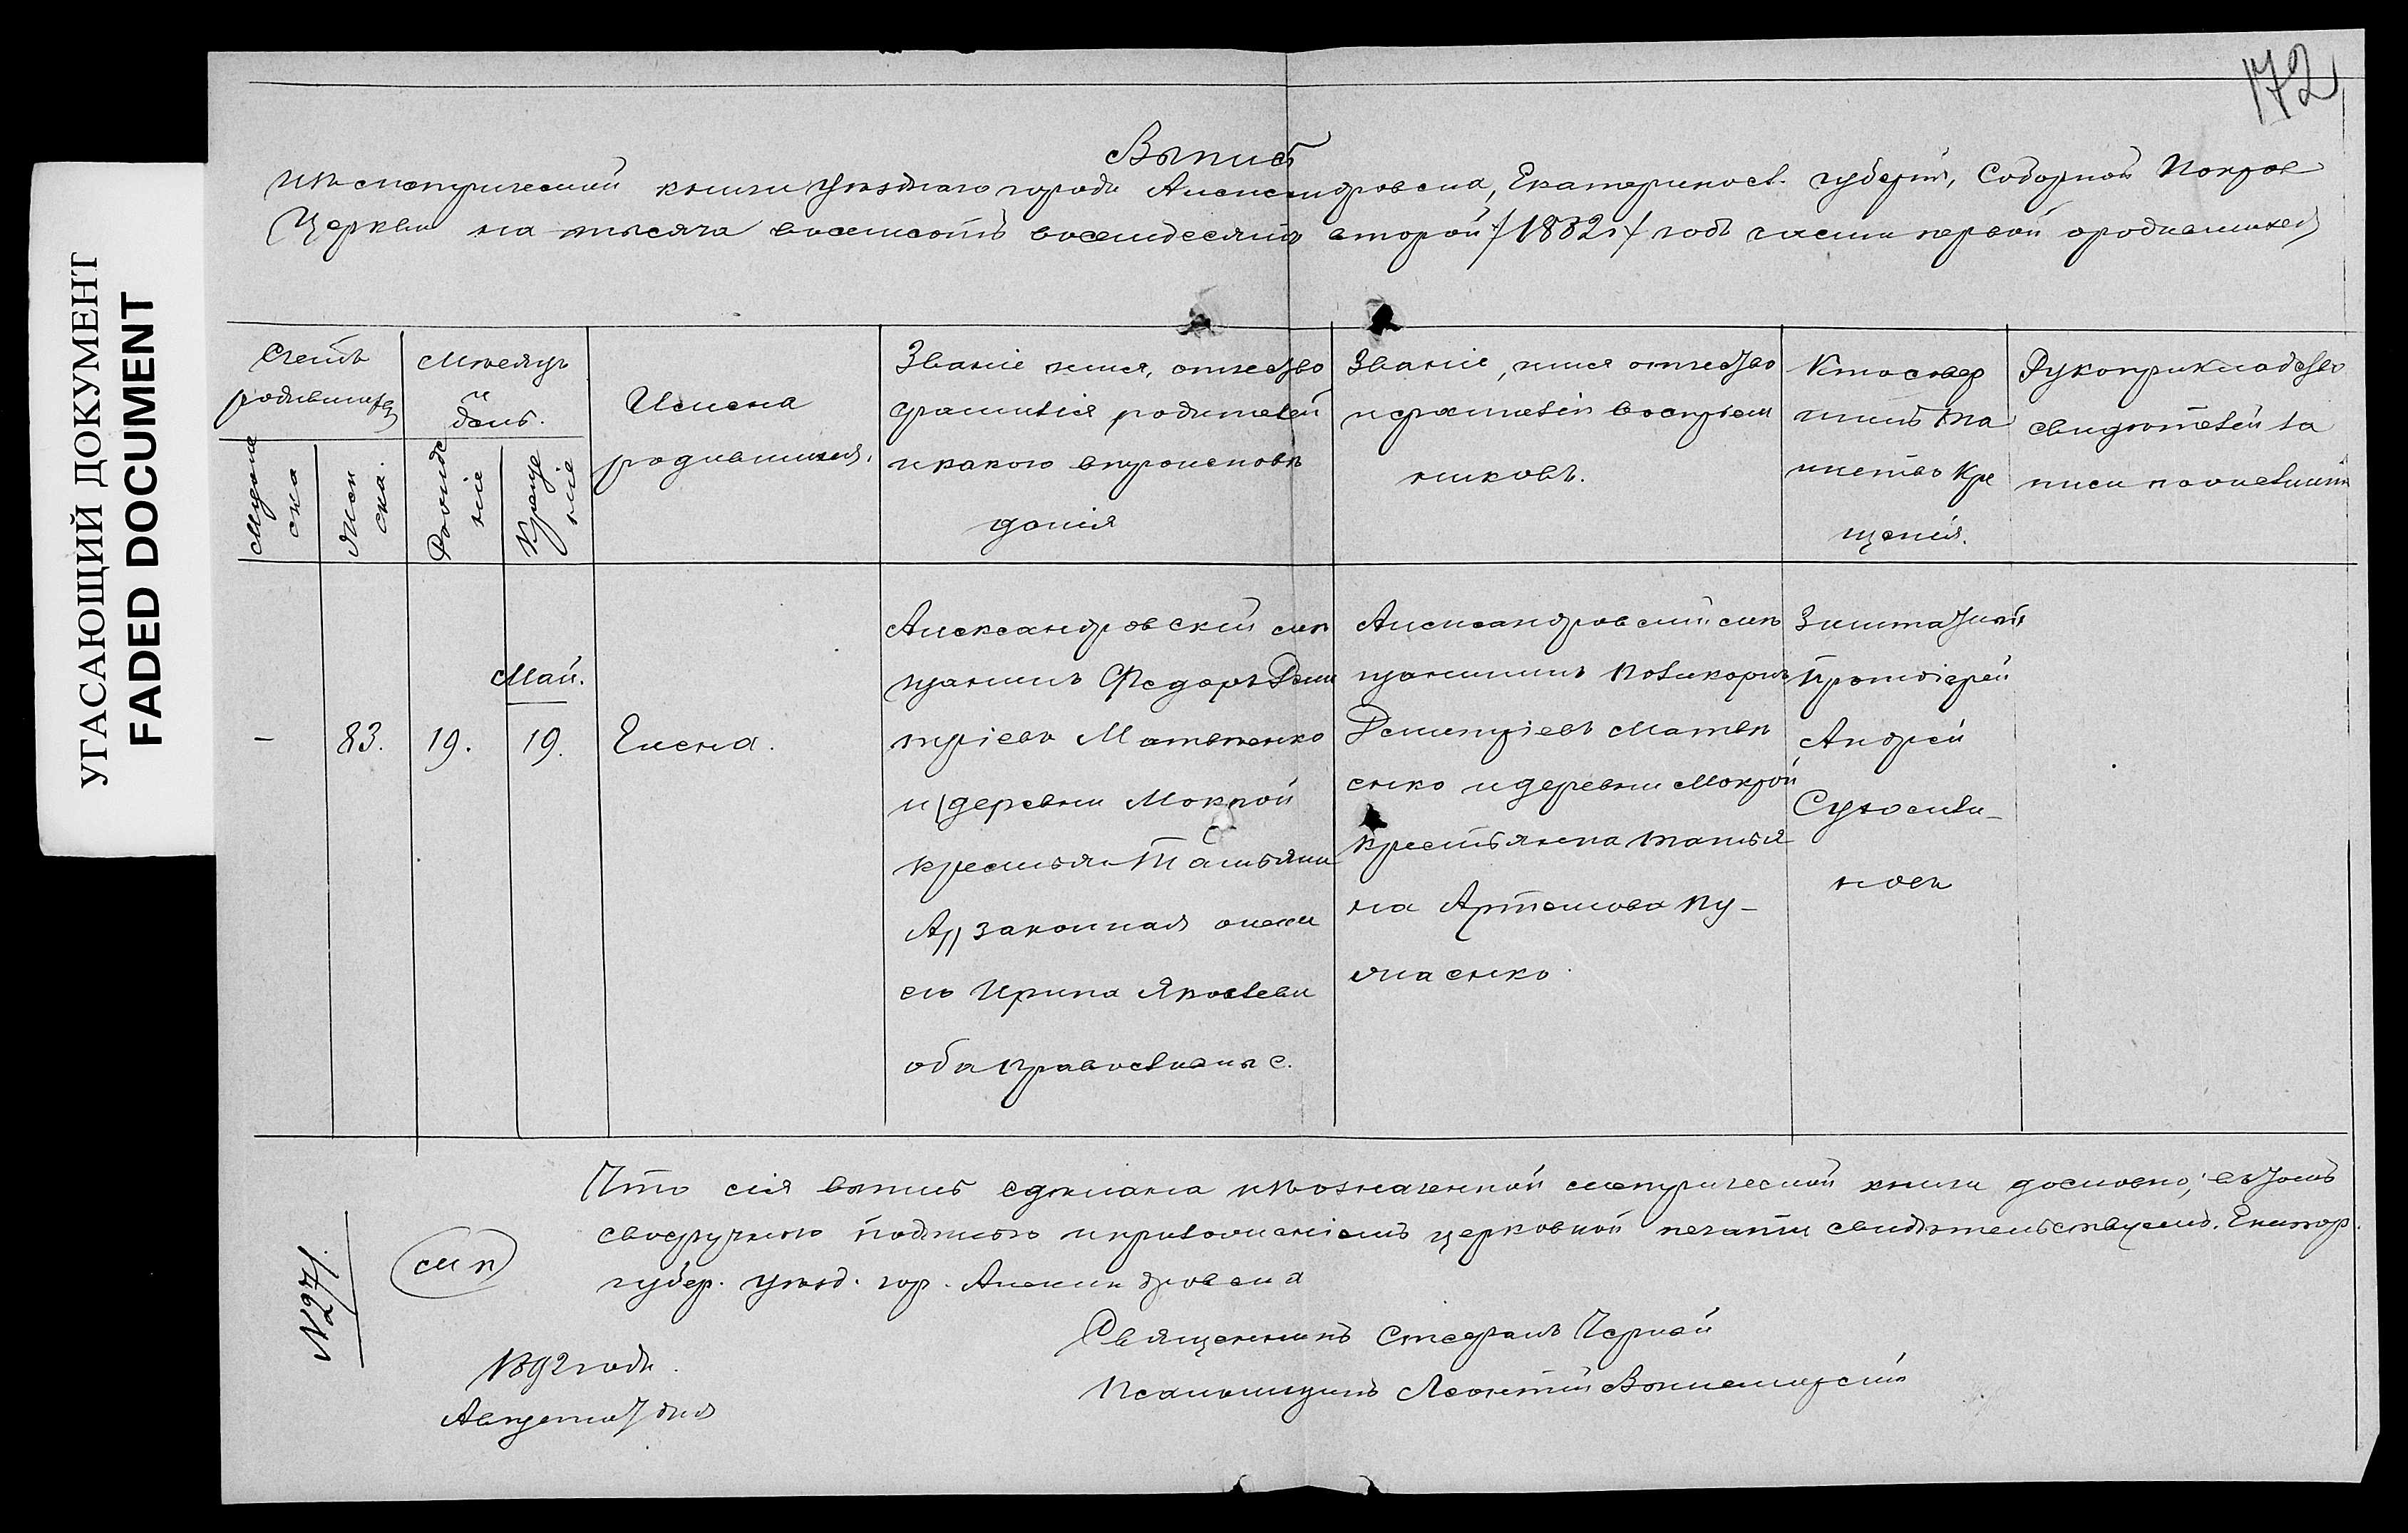 172
УГАСАЮЩИЙ ДОКУМЕНТ
FADED DOCUMENT
Выпись
изъ метрической книги уѣзднаго города Александровска, Екатеринослав. губерніи, Соборной Покров
Церкви на тысяча восемсотъ восемдесятъ второй /1882г/ годъ части первой о родившихся
Счетъ
родившихся
Мужеска
Женска.
Мѣсяцъ
и
день.
Рожденіе
Крещеніе
Имена
родившихся.
Званіе имя, отчество
фамилія родителей
и какого вѣроисповѣ
данія
Званіе, имя отчество
и фамилія воспріем
никовъ.
Кто совер
шилъ та
инство кре
щенія.
Рукоприкладство
свидѣтелей за
писи по желанію
Май.
-
83.
19.
19.
Елена.
Александровскій мѣ
щанинъ Федоръ Дми
тріевъ Матвѣенко
и
законная жена
его Ирина Яковлева
оба православные.
Александровскій мѣ
щанинъ Поликарпъ
Дмитріевъ Матвѣ
енко и деревни Мокрой
крестьянка Татья
на Артемова
Заштатный
Протоіерей
Андрей
Что сія выпись сдѣлана изъ означенной метрической книги дословно, въ томъ
своеручною подписью и приложеніемъ церковной печати свидѣтельствуемъ. Екатер.
губер. уѣзд. гор. Александровска
м п
№ 271.
Священникъ Стефанъ Черной
Псаломщикъ Леонтій
1892 года.
Августа 7 дня